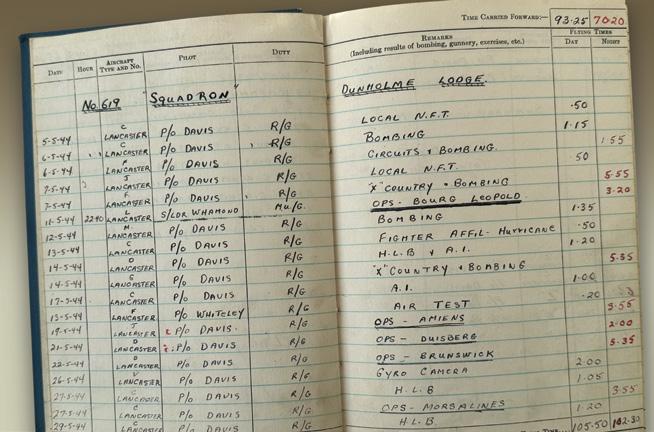 DATE HOUR AIRCRAFT TYPE AND NO. PILOT DUTY
No. 619 "SQUADRON"
5-5-44 C LANCASTER P/O DAVIS R/G
6-5-44 C LANCASTER P/O DAVIS R/G
6-5-44 LANCASTER P/O DAVIS R/G
7-5-44 J LANCASTER P/O DAVIS R/G
7-5-44 F LANCASTER P/O DAVIS R/G
11-5-44 2240 L LANCASTER S/LDR WHAMOND MU/G.
12-5-44 M LANCASTER P/O DAVIS R/G
13-5-44 C LANCASTER P/O DAVIS R/G
14-5-44 D LANCASTER P/O DAVIS R/G
14-5-44 G LANCASTER P/O DAVIS R/G
17-5-44 C LANCASTER P/O DAVIS R/G
LANCASTER P/O WHITELEY R/G
19-5-44 J LANCASTER P/O DAVIS R/G
21-5-44 D LANCASTER P/O DAVIS R/G
22-5-44 D LANCASTER P/O DAVIS R/G
26-5-44 V LANCASTER P/O DAVIS R/G
27-5-44 LANCASTER P/O DAVIS R/G
27-5-44 C LANCASTER P/O DAVIS R/G
29-5-44 LANCASTER P/O DAVIS R/G
TIME CARRIED FORWARD:— 93.25 70.20
REMARKS
(Including results of bombing, gunnery, exercises, etc.)
FLYING TIMES
DAY NIGHT
DUNHOLME LODGE.
LOCAL N.F.T. .50
BOMBING 1.15
CIRCUITS & BOMBING. 1.55
LOCAL N.F.T. .50
"X" COUNTRY & BOMBING 5.55
OPS - BOURG LEOPOLD 3.20
BOMBING 1.35
FIGHTER AFFIL - HURRICANE .50
H.L.B & A.I. 1.20
"X" COUNTRY & BOMBING 5.35
A.I. 1.00
AIR TEST .20
OPS - AMIENS 3.55
OPS - DUISBERG 2.00
OPS - BRUNSWICK 5.35
GYRO CAMERA 2.00
H.L.B 1.05
OPS - MORSALINES 3.55
H.L.B 1.20
TIME 105.50 102.30